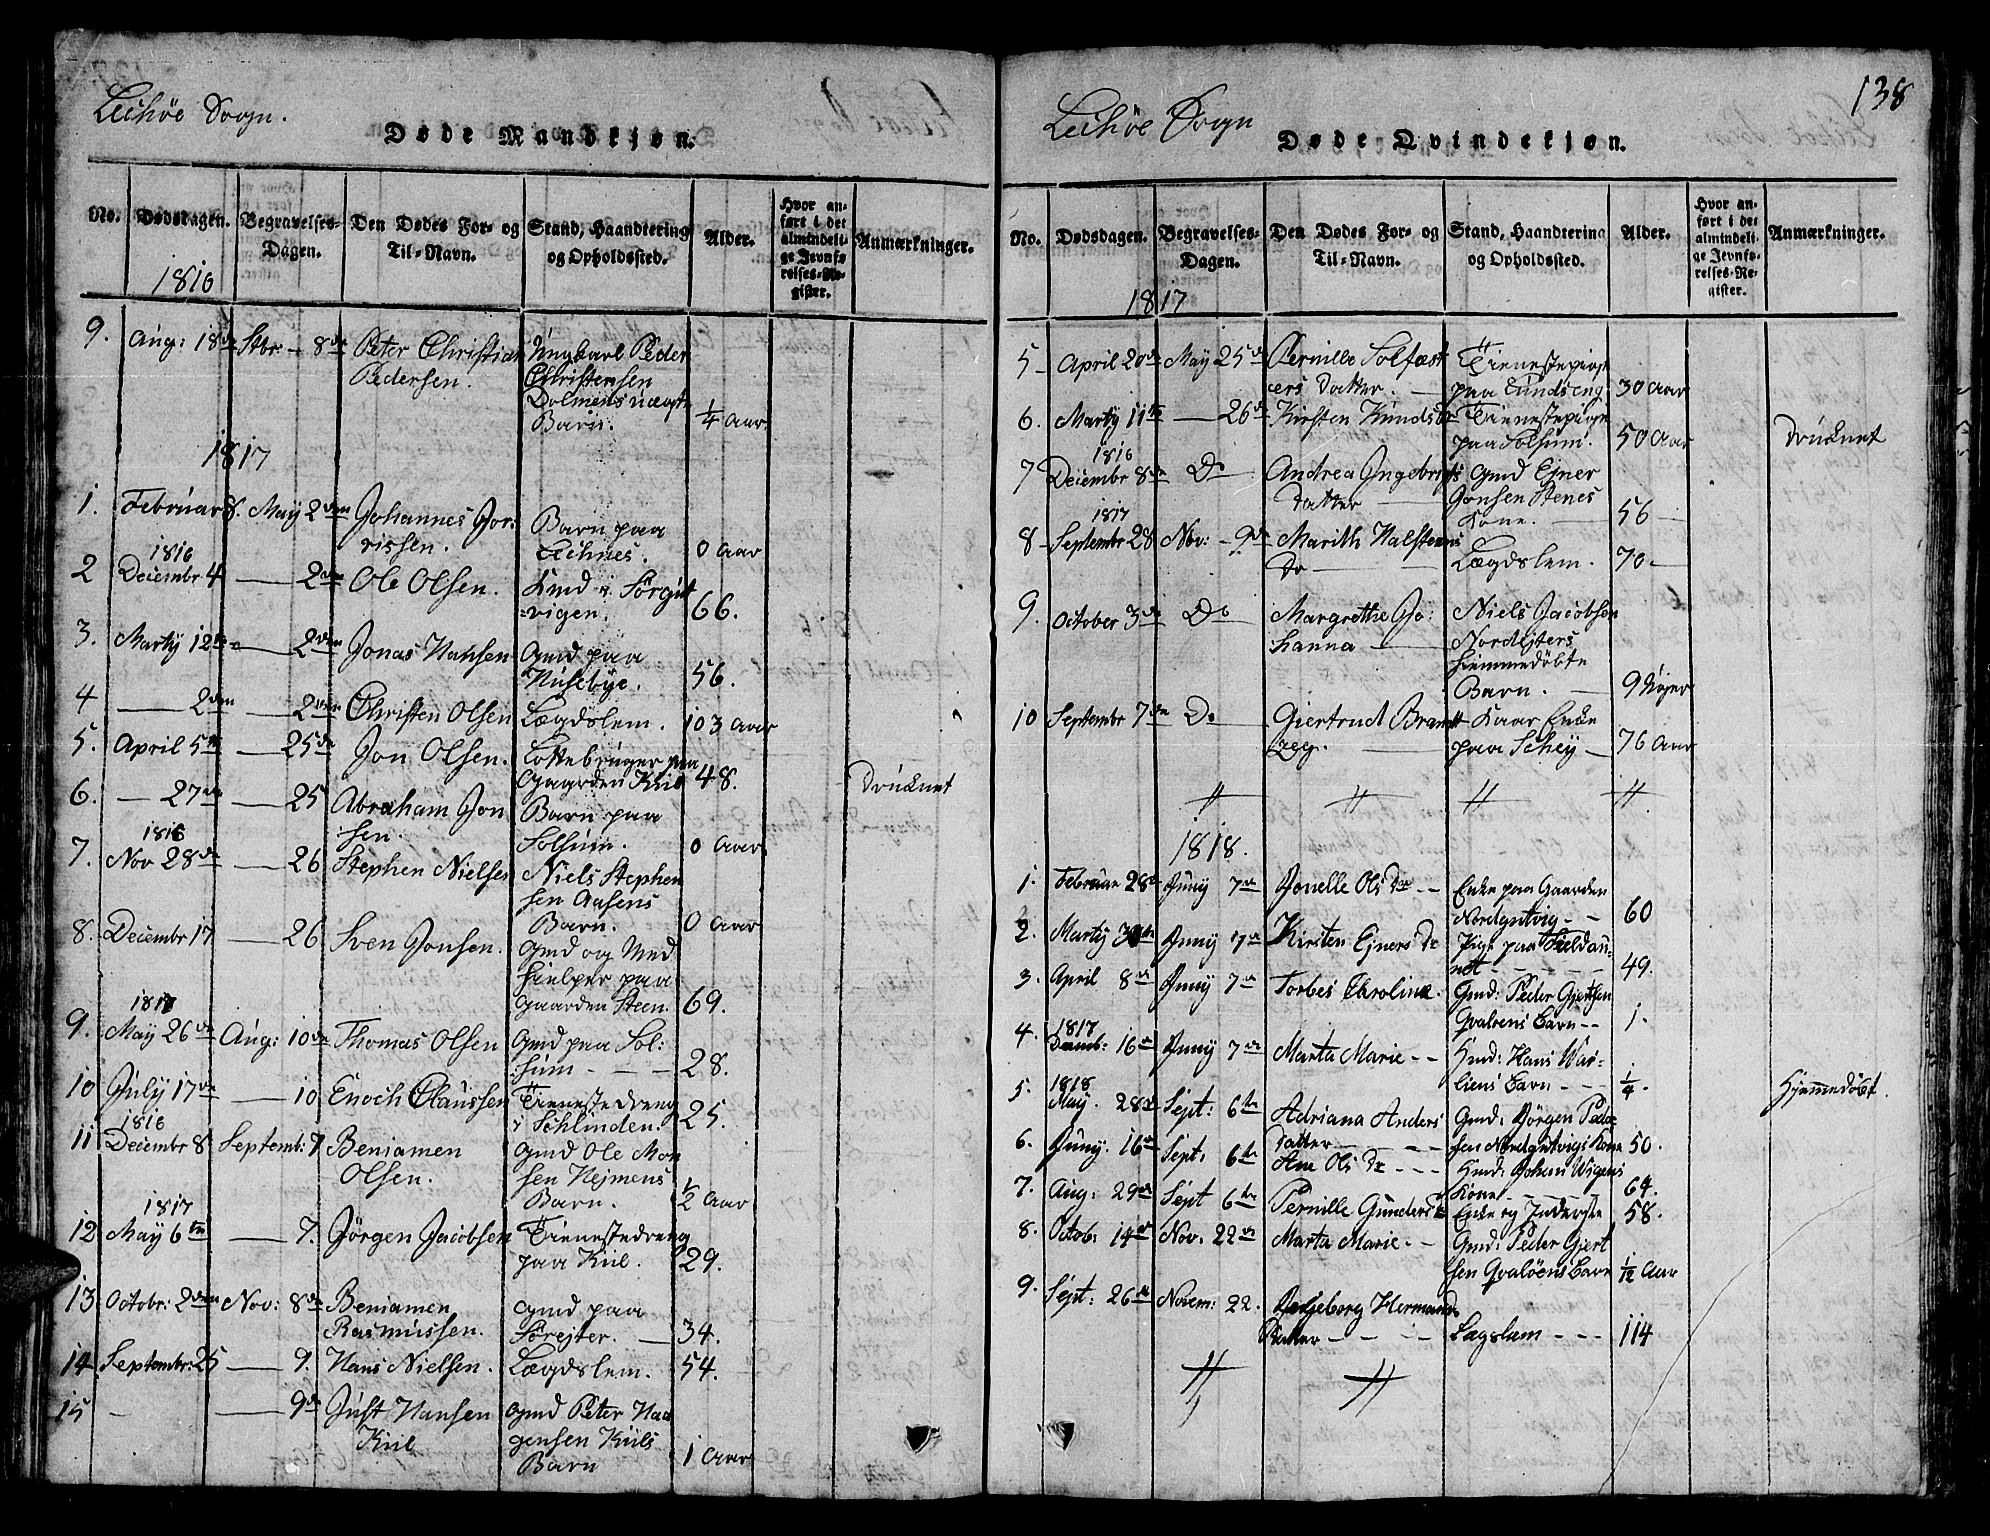 Lechöe Sogn.
Døde Mandkjøn.
No. Dødsdagen. Begravelses-Dagen. Den Dødes For- og Til-Navn. Stand, Haandtering og Opholdssted. Alder. Hvor anført i det almindelige Jevnførelses-Register. Anmærkninger.
1816
9. Aug: 18de Sbr - 8de Peter Christian Ungkarl Peder
Pedersen. Christensen
Dolmens uægte
Barn. 1/4 Aar
1817
1. Februar 8. May 2den Johannes Jor: Barn paa
rissen. 0 Aar
1816
2 Decembr 4 — 2den Ole Olsen.
vigen. 66.
3. Martÿ 12te — 2den Jonas Hansen Gmd paa
Husebye. 56.
4 — 2den — 2den Christen Olsen Lægdslem. 103 Aar
5. April 5te — 25de Jon Olsen. Lottebruger paa
Gaarden Kiil 48. Drucknet
6. — 27de — 25 Abraham Jon Barn paa
sen. Solsum. 0 Aar
1816
7. Nov 28de — 26 Stephen Nielsen Niels Stephen
sen Aasens
Barn. 0 Aar
8. Decembr 17 — 26 Sven Jonsen. Gmd og Med
hielper paa
Gaarden Steen. 69.
1817
9. May 26de Aug: 10de Thomas Olsen Gmd paa Sol:
sum - - - 28.
10 July 17de — 10 Enoch Claussen Tienestedreng
i Schlinden. 25.
1816
11 Decembr 8 Septemb: 7 Beniamen Gmd Ole Mon
Olsen. sen Hejmens
Barn. 1/2 Aar
1817
12 May 6te — 7. Jörgen Jacobsen Tienestedreng
paa Kiil. 29.
13 Octobr: 2den Nov: 8de Beniamen Gmd paa
Rasmussen. Sörejter. — 34.
14 Septembr: 25 — 9. Hans Nielsen. Lægdslem. 54.
15 - — 9de Just Hansen Gmd Peter Haa
Kiil gensen Kiils
Barn 1 Aar
138
Lechöe Sogn
Døde Qvindekjøn.
No. Dødsdagen. Begravelses-Dagen. Den Dødes For- og Til-Navn. Stand, Haandtering og Opholdssted. Alder. Hvor anført i det almindelige Jevnførelses-Register. Anmærkninger.
1817
5 - April 20de May 25de Pernille Solfæst Tienestepige
ers Datter. — paa Lundseng. 30 Aar
6. Martÿ 11te — 26de Kirsten Knudsdr Tienestepige
paa Solsum. 50 Aar Drucknet
1816
7 Decembr 8de Do — Andrea Ingebrigts Gmd Ejner
Datter — Jonsen Stenes
Kone. — 56 -
1817
8 - Septembr 28 Nov: - 9de Marith Halstens
Do — Lægdslem. 70 -
9. October 3de Do Margrethe Jo: Niels Jacobsen
hanna — Nordejters
hiemmedöbte
Barn. — 9 Uger
10 Septembr 7de Do Giertrud Brandt Kaar Enke
zeg. — paa Schey — 76 Aar
1818.
1. Februar 28de Juny 7de Jonelle Ols Dr - - Enke paa Gaarden
Nordgutvig - - 60
2. Martÿ 30te Juny 7de Kirsten Ejners Dr Pige paa Fieldau:
net - - - - 49.
3. April 8de Juny 7de Torbes Caroline. Gmd: Peder Gjertsen
Qvaløens Barn - - 1.
1817
4. Decmb: 16de Juny 7de Marta Marie - - Hmd: Hans War-
liens Barn - - - 1/4.
1818
5. May. 28de Sept: 6te Adriana Anders Gmd: Jörgen Peder
Datter - - - sen Nordgutvigs Kone 50.
6. Juny. 16de Sept: 6te Ane Ols Dr - - - Hmd: Johan Wigens
Kone - - - - 64.
7. Aug: 29de Sept 6te Pernille Gunders Dr Enke og Inderste 58.
8. Octob: 14de Nov: 22de Marta Marie - - Gmd: Peder Gjert
sen Qvaløens Barn 1/12 Aar
9. Sept: 26de Novem: 22. Ingeborg Hermands
Datter - - - Lagslem - - - 114
Hjemmedöbt.